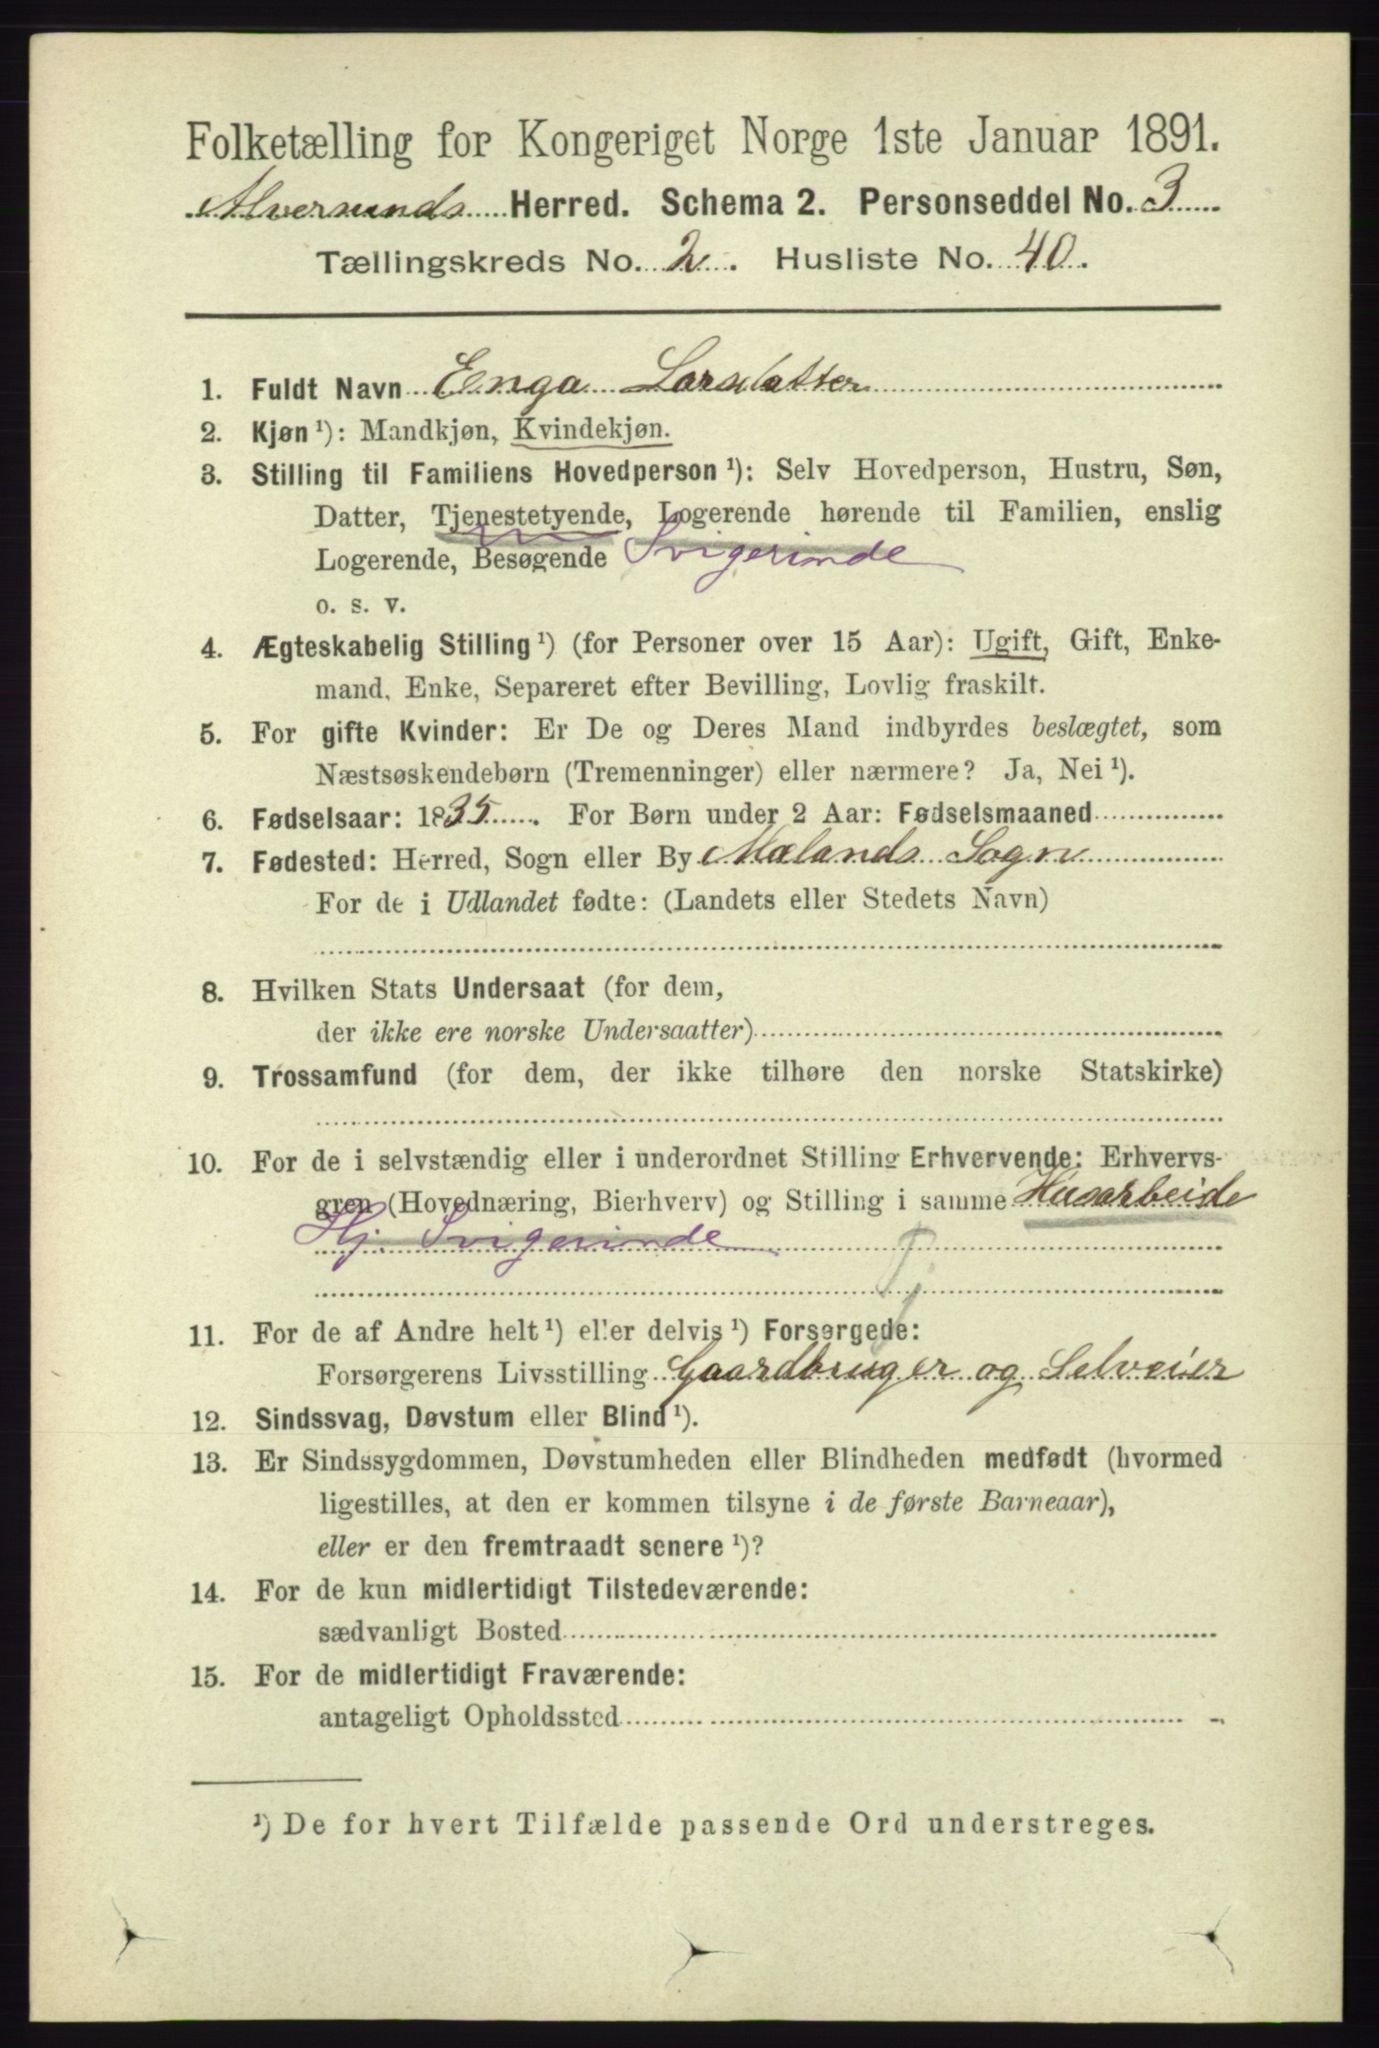 Folketælling for Kongeriget Norge 1ste Januar 1891.
Alversunds Herred. Schema 2. Personseddel No. 3
Tællingskreds No. 2. Husliste No. 40.
1. Fuldt Navn Enga Larsdatter
2. Kjøn ¹): Mandkjøn, Kvindekjøn.
3. Stilling til Familiens Hovedperson ¹): Selv Hovedperson, Hustru, Søn,
Datter, Tjenestetyende, Logerende hørende til Familien, enslig
Logerende, Besøgende Svigerinde
o. s. v.
4. Ægteskabelig Stilling ¹) (for Personer over 15 Aar): Ugift, Gift, Enke-
mand, Enke, Separeret efter Bevilling, Lovlig fraskilt.
5. For gifte Kvinder: Er De og Deres Mand indbyrdes beslægtet, som
Næstsøskendebørn (Tremenninger) eller nærmere? Ja, Nei ¹).
6. Fødselsaar: 1835. For Børn under 2 Aar: Fødselsmaaned
7. Fødested: Herred, Sogn eller By Mælands Sogn
For de i Udlandet fødte: (Landets eller Stedets Navn)
8. Hvilken Stats Undersaat (for dem,
der ikke ere norske Undersaatter)
9. Trossamfund (for dem, der ikke tilhøre den norske Statskirke)
10. For de i selvstændig eller i underordnet Stilling Erhvervende: Erhvervs-
gren (Hovednæring, Bierhverv) og Stilling i samme Husarbeide
Hj. Svigerinde
11. For de af Andre helt ¹) eller delvis ¹) Forsørgede:
Forsørgerens Livsstilling Gaardbruger og Selveier
12. Sindssvag, Døvstum eller Blind ¹).
13. Er Sindssygdommen, Døvstumheden eller Blindheden medfødt (hvormed
ligestilles, at den er kommen tilsyne i de første Barneaar),
eller er den fremtraadt senere ¹)?
14. For de kun midlertidigt Tilstedeværende:
sædvanligt Bosted
15. For de midlertidigt Fraværende:
antageligt Opholdssted
¹) De for hvert Tilfælde passende Ord understreges.